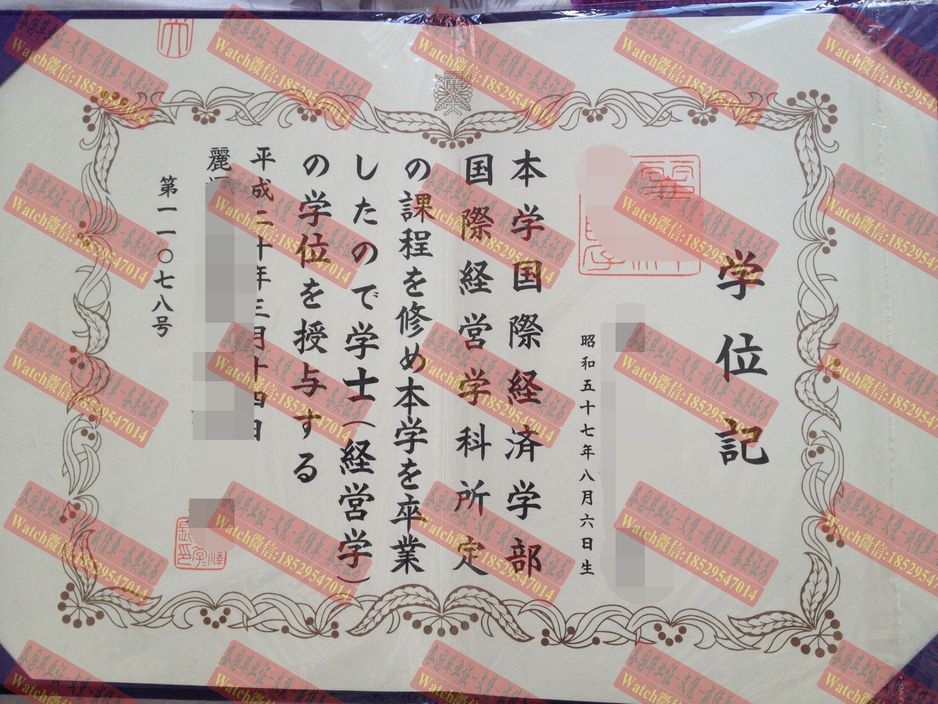 学位記
昭和五十七年八月六日生
本学国際経済学部
国際経営学科所定
の課程を修め本学を卒業
したので学士（経営学）
の学位を授与する
平成二十年三月十四日
麗
第一一〇七八号
Watch微信:18529547014